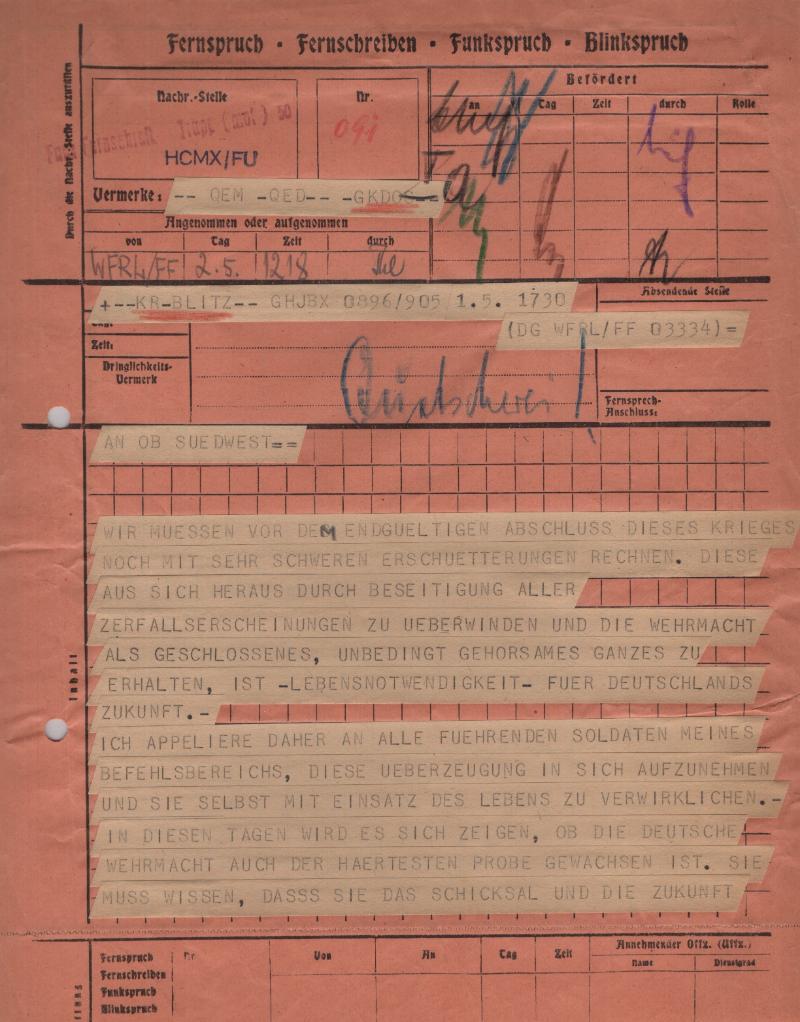 Fernspruch · Fernschreiben · Funkspruch · Blinkspruch
Durch die Nachr.-Stelle auszufüllen
Nachr.-Stelle
Nr.
Befördert
an Tag Zeit durch Rolle
HCMX/FU
Vermerke: -- QEM -QED-- -GKDOS
Angenommen oder aufgenommen
von Tag Zeit durch
WFRL/FF 2.5. 1218
+--KR-BLITZ-- GHJBX 0896/905 1.5. 1730
Absendende Stelle
(DG WFRL/FF 03334)=
Zeit:
Dringlichkeits-
Vermerk
Fernsprech-
Anschluss:
AN OB SUEDWEST==
WIR MUESSEN VOR DEM ENDGUELTIGEN ABSCHLUSS DIESES KRIEGES
NOCH MIT SEHR SCHWEREN ERSCHUETTERUNGEN RECHNEN. DIESE
AUS SICH HERAUS DURCH BESEITIGUNG ALLER
ZERFALLSERSCHEINUNGEN ZU UEBERWINDEN UND DIE WEHRMACHT
ALS GESCHLOSSENES, UNBEDINGT GEHORSAMES GANZES ZU
ERHALTEN, IST -LEBENSNOTWENDIGKEIT- FUER DEUTSCHLANDS
ZUKUNFT.-
ICH APPELIERE DAHER AN ALLE FUEHRENDEN SOLDATEN MEINES
BEFEHLSBEREICHS, DIESE UEBERZEUGUNG IN SICH AUFZUNEHMEN
UND SIE SELBST MIT EINSATZ DES LEBENS ZU VERWIRKLICHEN.-
IN DIESEN TAGEN WIRD ES SICH ZEIGEN, OB DIE DEUTSCHE
WEHRMACHT AUCH DER HAERTESTEN PROBE GEWACHSEN IST. SIE
MUSS WISSEN, DASSS SIE DAS SCHICKSAL UND DIE ZUKUNFT
Inhalt
Fernspruch Nr. Von An Tag Zeit Annehmender Offz. (Uffz.)
Fernschreiben Name Dienstgrad
Funkspruch
Blinkspruch